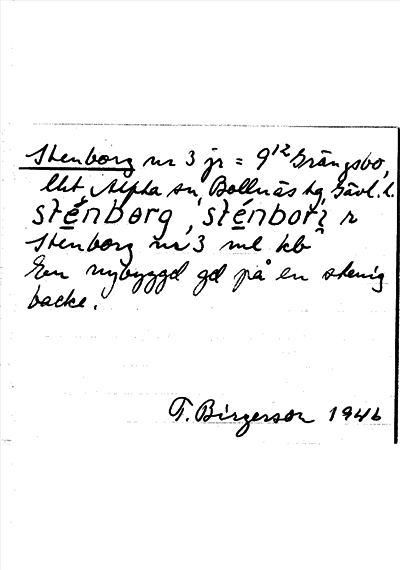 Stenborg nr 3 jr = 9¹² Grängsbo,
Alfta sn, Bollnäs tg, Gävl. l.
sténbǫrg, sténbǫrʒ r
Stenborg nr 3 ml kb
En nybyggd gd på en stenig
backe.
T. Birgerson 1946